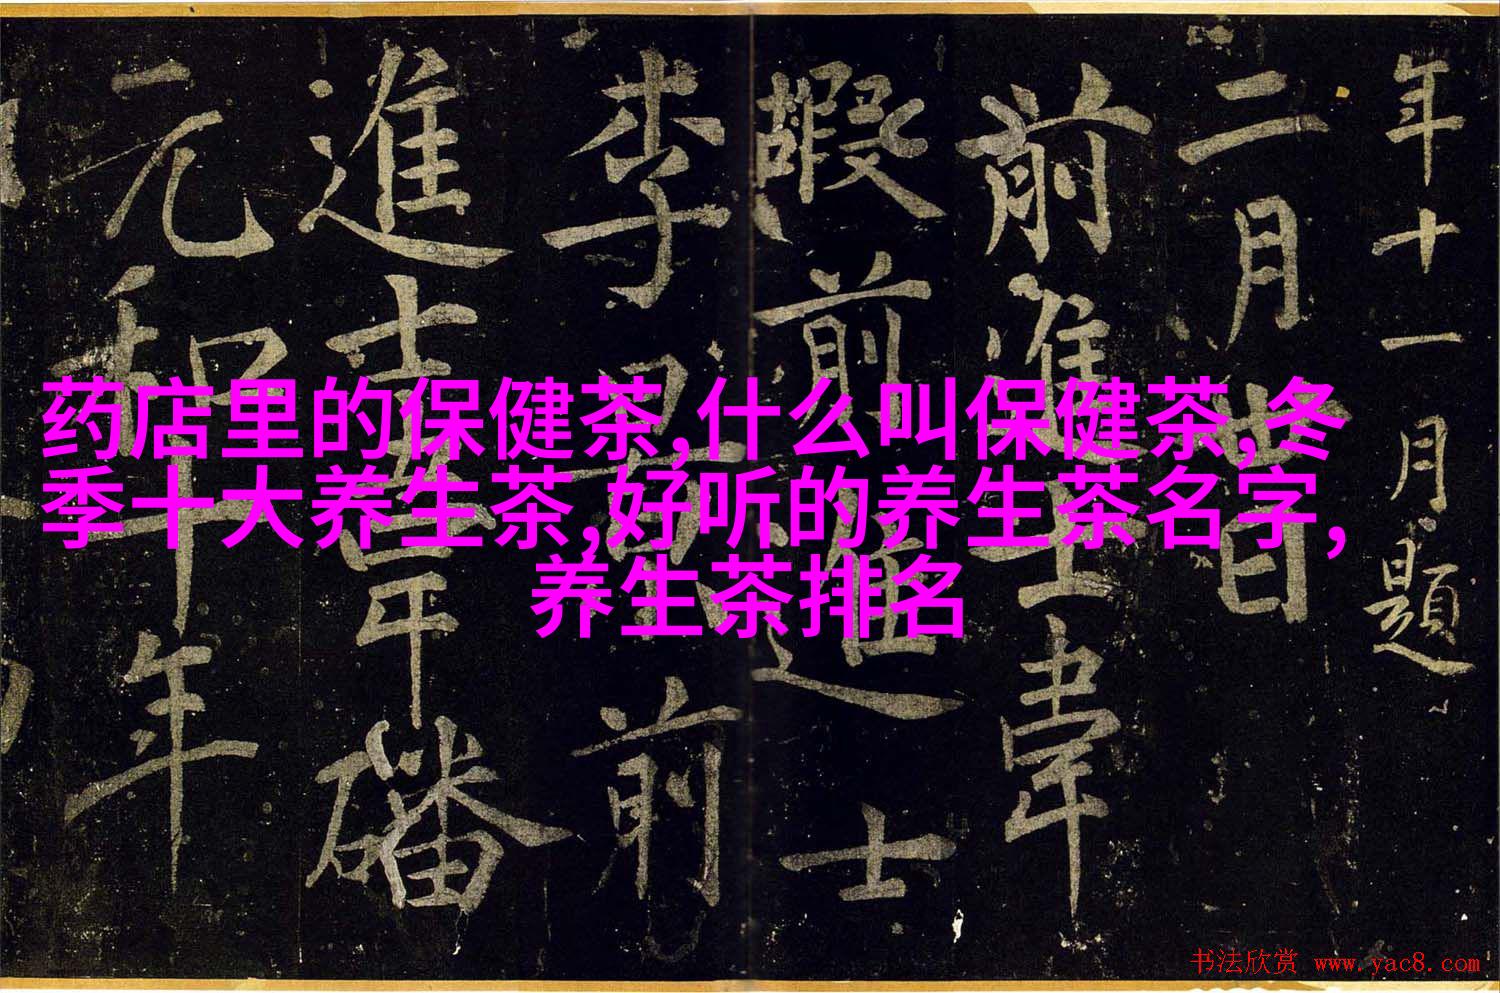 年十一月題
二月
前進士韋
嘏前進士
李
前
進士
磻
元和
年
药店里的保健茶,什么叫保健茶,冬
季十大养生茶,好听的养生茶名字,
养生茶排名
书法欣赏 www.yac8.com